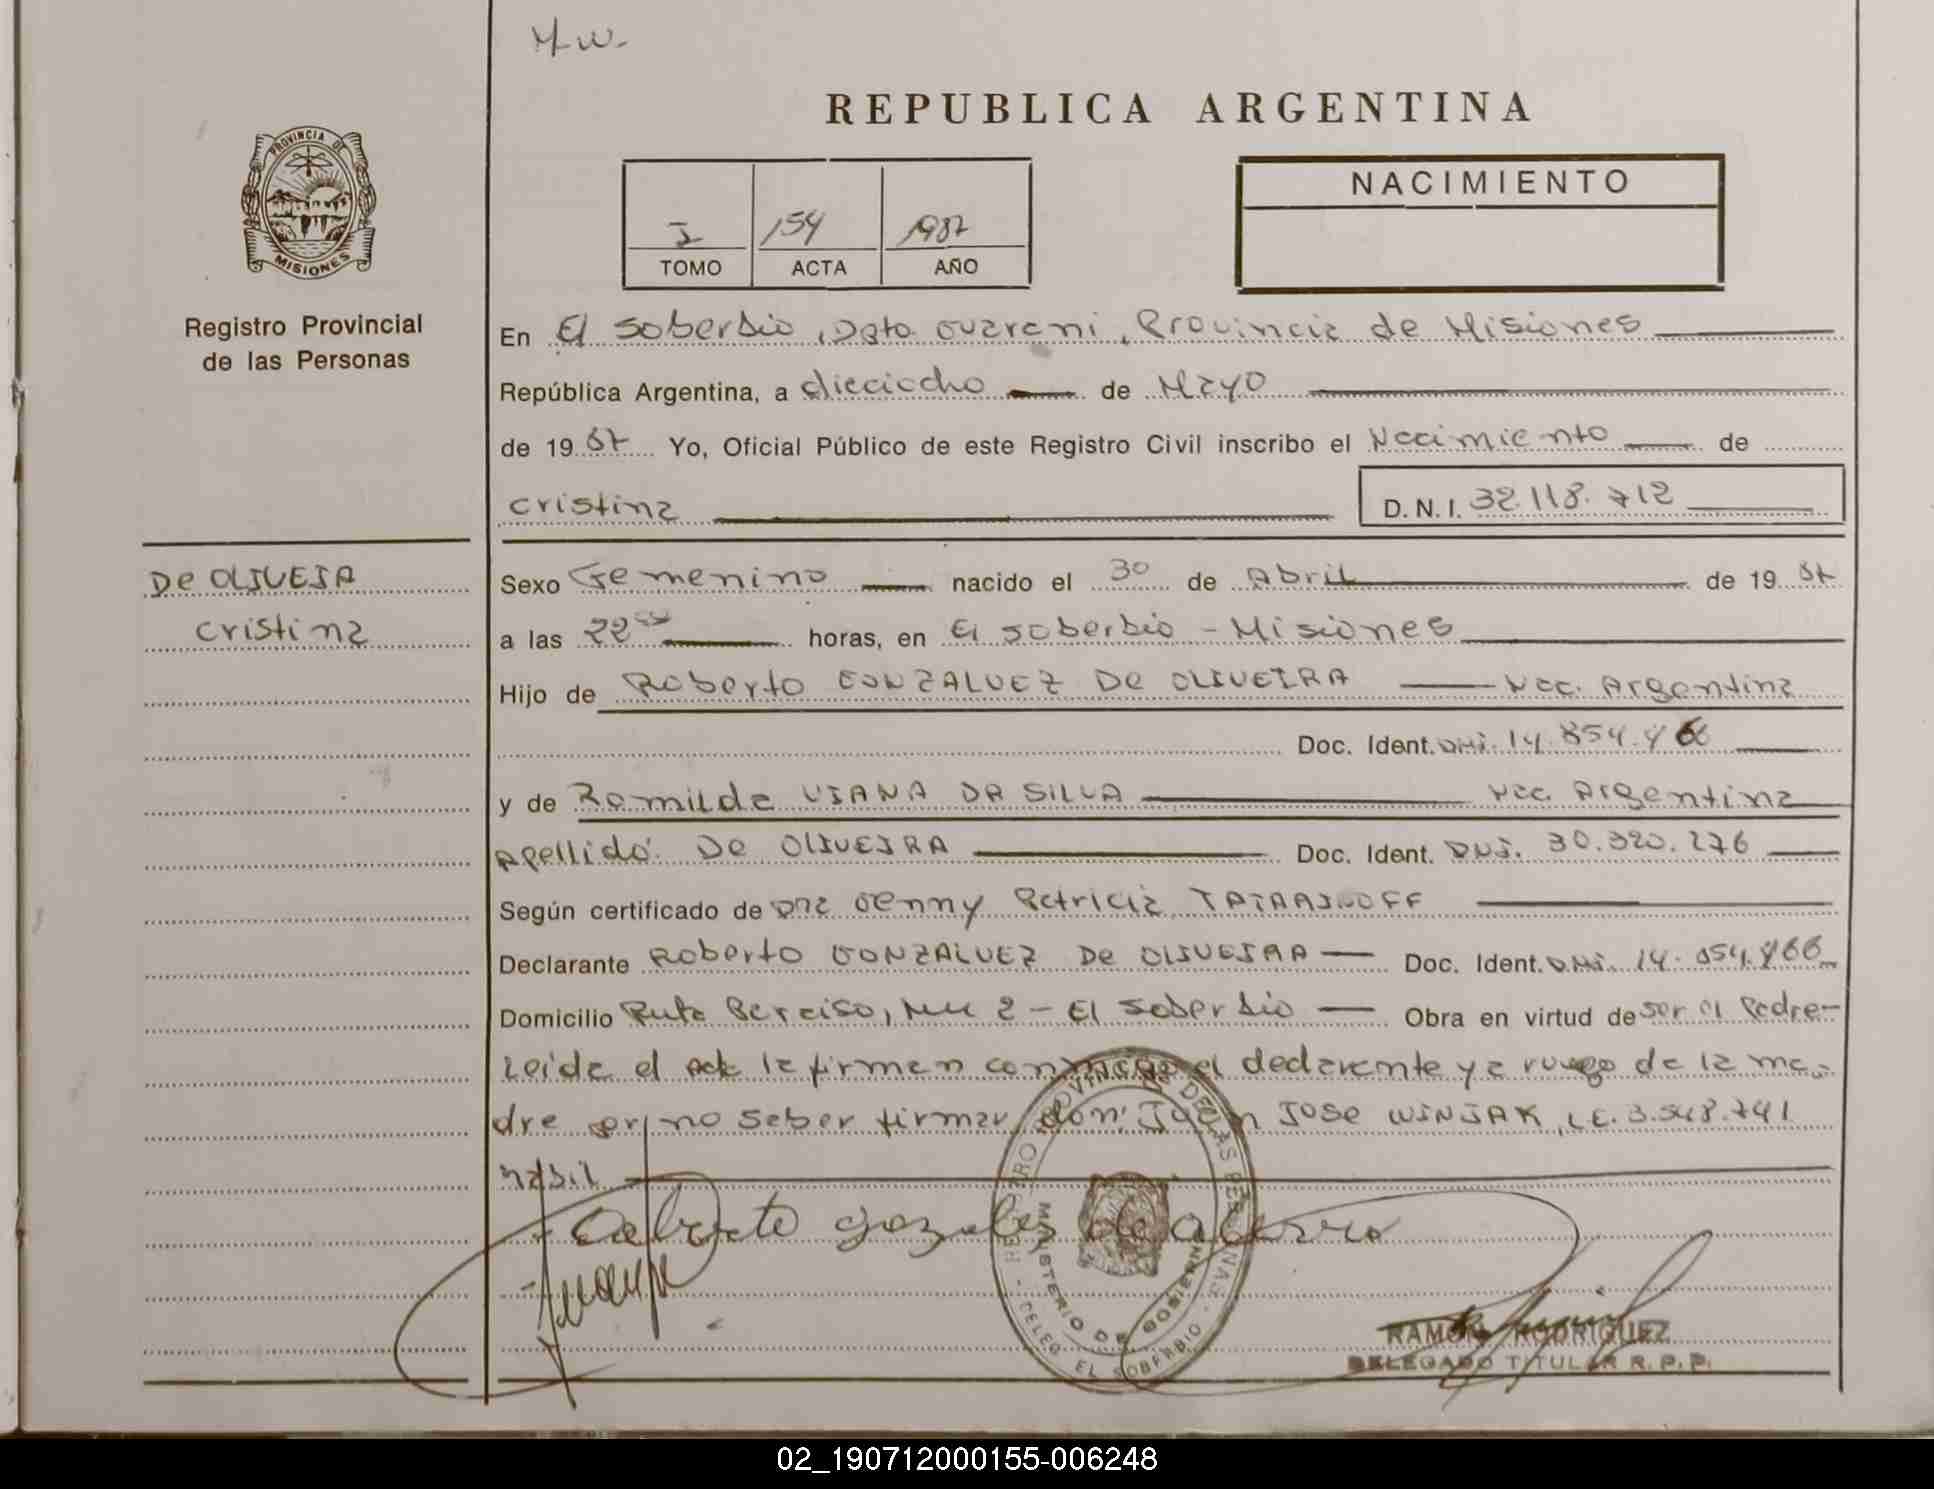 M.W.
REPUBLICA ARGENTINA
PROVINCIA DE
MISIONES
Registro Provincial
de las Personas
I 154 1987
TOMO ACTA AÑO
NACIMIENTO
En El Soberbio, Dpto. Guarani, Provincia de Misiones
República Argentina, a dieciocho de Mayo
de 1987 Yo, Oficial Público de este Registro Civil inscribo el Nacimiento de
Cristina D.N.I. 32.118.712
De OLIVEIRA
Cristina
Sexo Femenino nacido el 30 de Abril de 1987
a las 22 horas, en El Soberbio - Misiones
Hijo de Roberto GONZALVEZ De OLIVEIRA Nac. Argentina
Doc. Ident. DNI. 14.854.466
y de Romilda VIANA DA SILVA Nac. Argentina
Apellido: De OLIVEIRA Doc. Ident. DNI. 30.320.276
Según certificado de Dra Jenny Patricia
Declarante Roberto GONZALVEZ De OLIVEIRA Doc. Ident. DNI. 14.854.466
Domicilio Ruta 2 - El Soberbio Obra en virtud de ser el Padre-
Leida el acta la firman conmigo el declarante y a ruego de la ma-
dre por no saber firmar, don: Juan Jose WINIAK, L.E. 3.548.741
habil
REGISTRO PROVINCIAL DE LAS PERSONAS
MINISTERIO DE GOBIERNO
DELEG. EL SOBERBIO
RAMON RODRIGUEZ
DELEGADO TITULAR R.P.P.
02_190712000155-006248